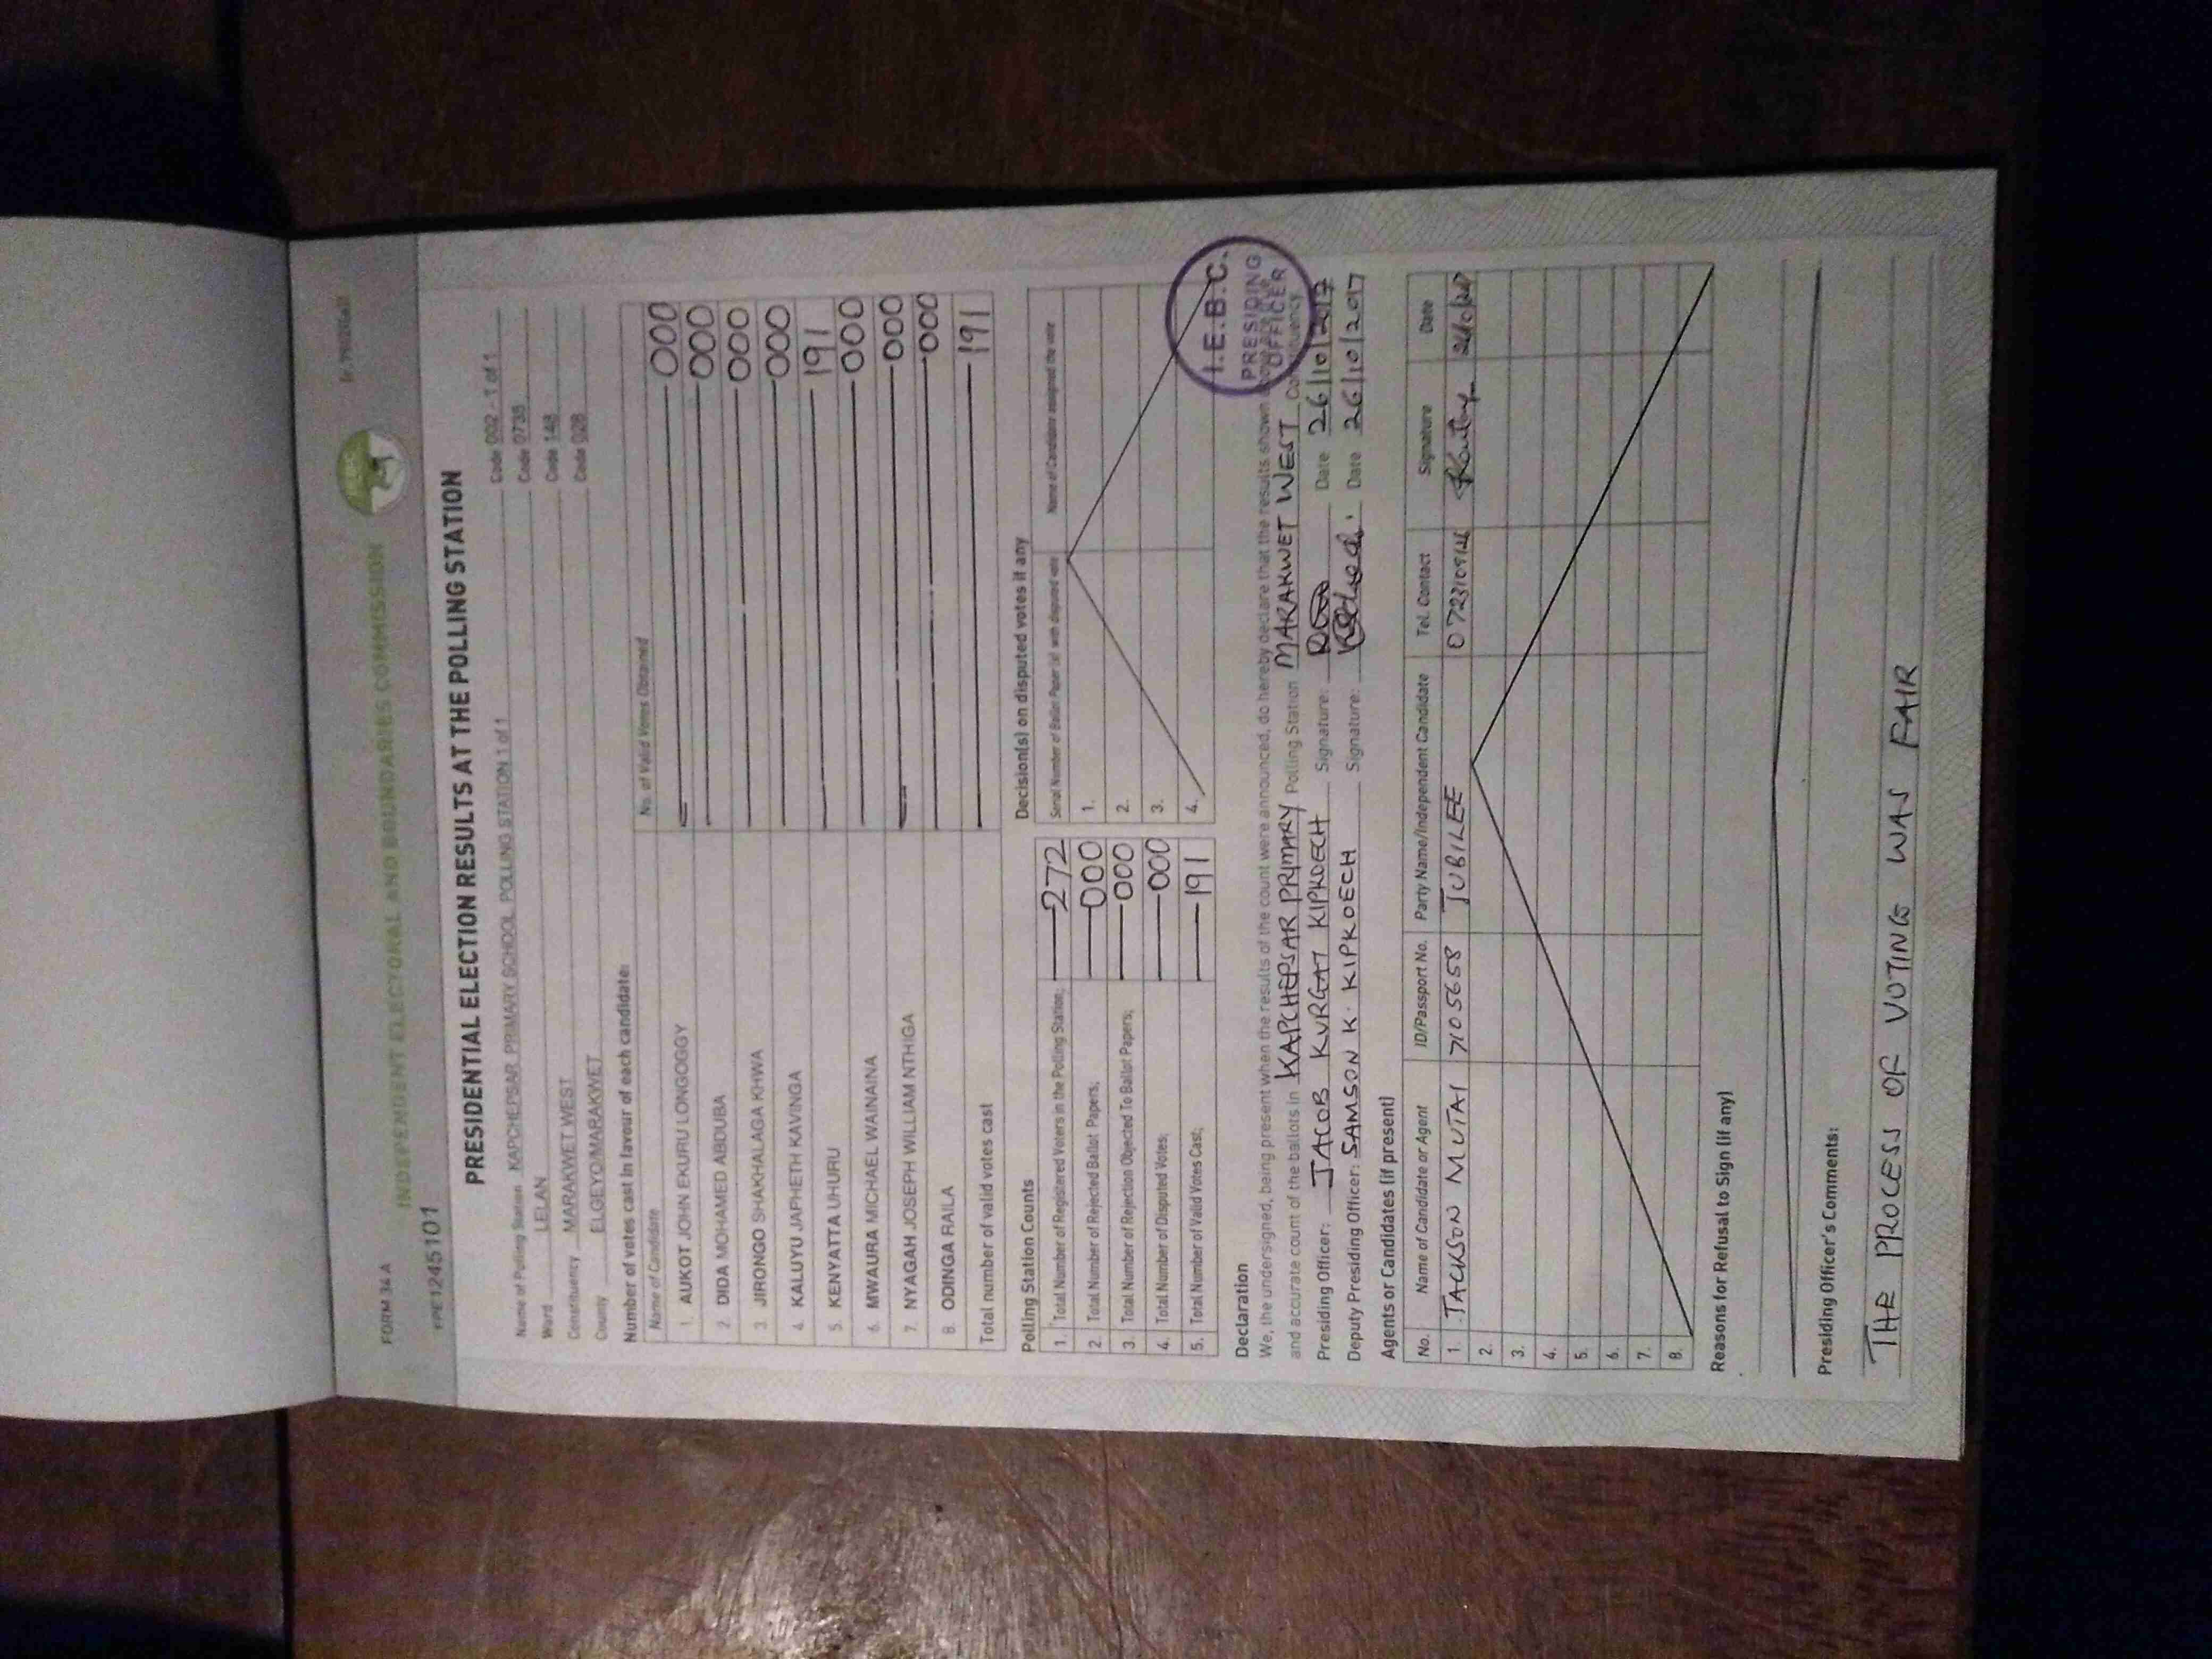 FORM 34 A
INDEPENDENT ELECTORAL AND BOUNDARIES COMMISSION
PRESIDENTIAL ELECTION RESULTS AT THE POLLING STATION
Name of Polling Station KAPCHEPSAR PRIMARY SCHOOL POLLING STATION 1 of 1 Code 002 - 1 of 1
Ward LELAN Code 0735
Constituency MARAKWET WEST Code 148
County ELGEYO/MARAKWET Code 028
Number of votes cast in favour of each candidate:
Name of Candidate No. of Valid Votes Obtained
1. AUKOT JOHN EKURU LONGOGGY 000
2. DIDA MOHAMED ABDUBA 000
3. JIRONGO SHAKHALAGA KHWA 000
4. KALUYU JAPHETH KAVINGA 000
5. KENYATTA UHURU 191
6. MWAURA MICHAEL WAINAINA 000
7. NYAGAH JOSEPH WILLIAM NTHIGA 000
8. ODINGA RAILA 000
Total number of valid votes cast 191
Polling Station Counts
1. Total Number of Registered Voters in the Polling Station; 272
2. Total Number of Rejected Ballot Papers; 000
3. Total Number of Rejection Objected To Ballot Papers; 000
4. Total Number of Disputed Votes; 000
5. Total Number of Valid Votes Cast; 191
Decision(s) on disputed votes if any
Serial Number of Ballot Paper (s) with disputed vote Name of Candidate assigned the vote
1.
2.
3.
4.
I.E.B.C.
PRESIDING
OFFICER
Declaration
We, the undersigned, being present when the results of the count were announced, do hereby declare that the results shown
and accurate count of the ballots in KAPCHEPSAR PRIMARY Polling Station MARAKWET WEST Constituency
Presiding Officer: JACOB KURGAT KIPKOECH Signature: Date 26/10/2017
Deputy Presiding Officer: SAMSON K. KIPKOECH Signature: Date 26/10/2017
Agents or Candidates (if present)
No. Name of Candidate or Agent ID/Passport No. Party Name/Independent Candidate Tel. Contact Signature Date
1. JACKSON MUTAI 7105658 JUBILEE
2.
3.
4.
5.
6.
7.
8.
Reasons for Refusal to Sign (if any)
Presiding Officer's Comments:
THE PROCESS OF VOTING WAS FAIR